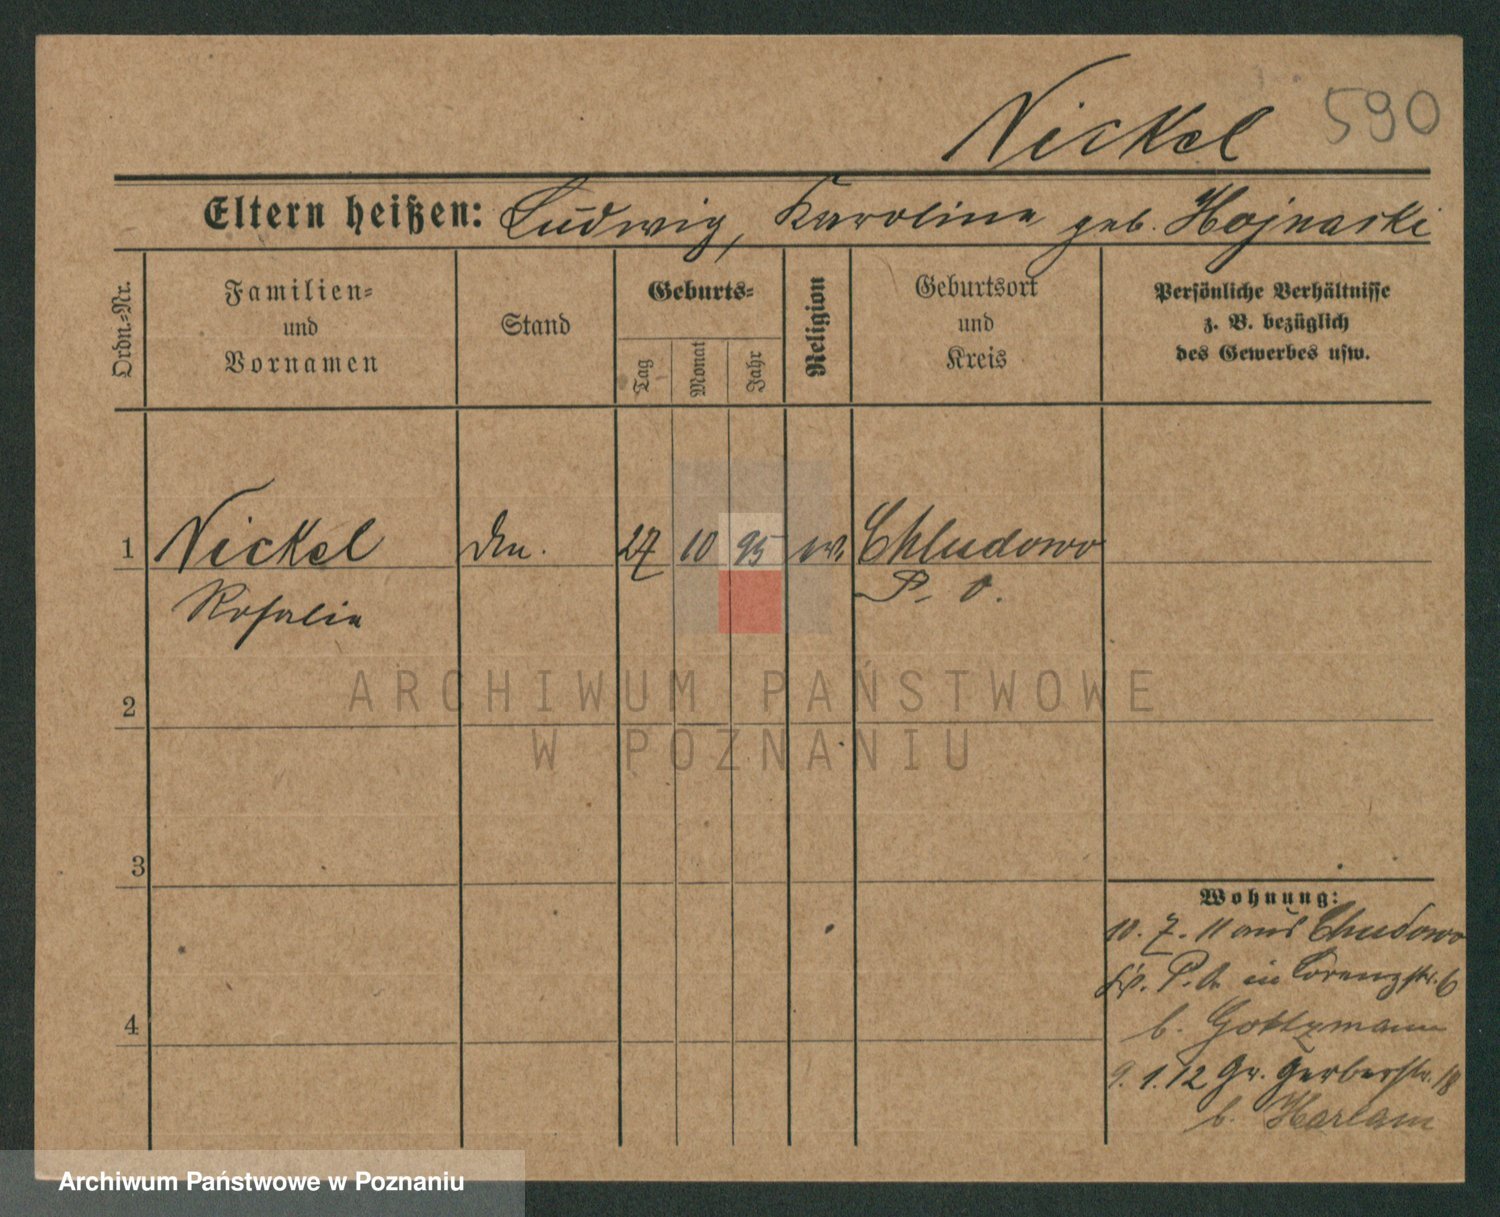 Nickel 590
Eltern heißen: Ludwig, Karoline geb. Hojnaski
Ordn.-Nr.
Familien-
und
Vornamen
Stand
Geburts-
Tag
Monat
Jahr
Religion
Geburtsort
und
Kreis
Persönliche Verhältnisse
z. B. bezüglich
des Gewerbes usw.
1 Nickel 27 10 95 Chludowo
Rosalie P. O.
2
3
4
ARCHIWUM PAŃSTWOWE
W POZNANIU
Wohnung:
10. 7. 11 aus Chudowo
P. O. in Lorenzstr. 6
b. Gottzmann
9. 1. 12 Gr. Gerberstr. 18
b. Harlam
Archiwum Państwowe w Poznaniu